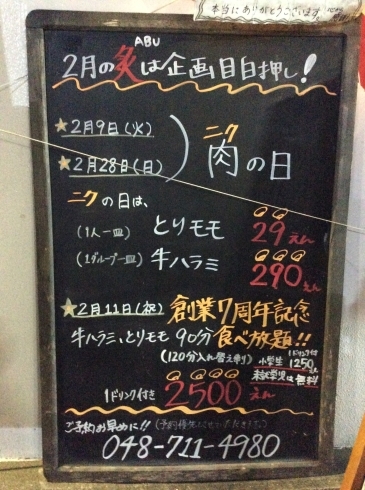 本当にありがとうございます。
ABU
2月の炙は企画目白押し!
★2月9日(火)
★2月28日(日)
ニク
肉の日
ニクの日は、
(1人一皿) とりモモ 29えん
(1グループ一皿) 牛ハラミ 290えん
★2月11日(祝) 創業7周年記念
牛ハラミ、とりモモ 90分食べ放題!!
(120分入れ替え制) 小学生 1ドリンク付 1250えん
未就学児は無料
1ドリンク付き 2500えん
ご予約お早めに!! (予約優先とさせていただきます。)
048-711-4980